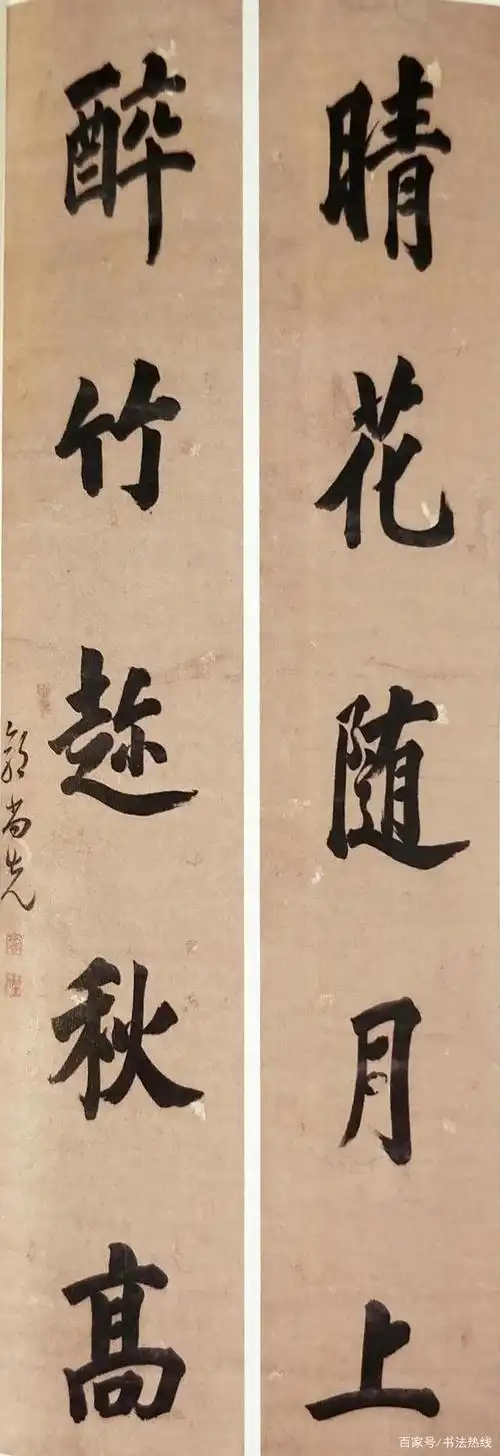 晴花随月上
醉竹趂秋高
郭尚先
百家号/书法热线